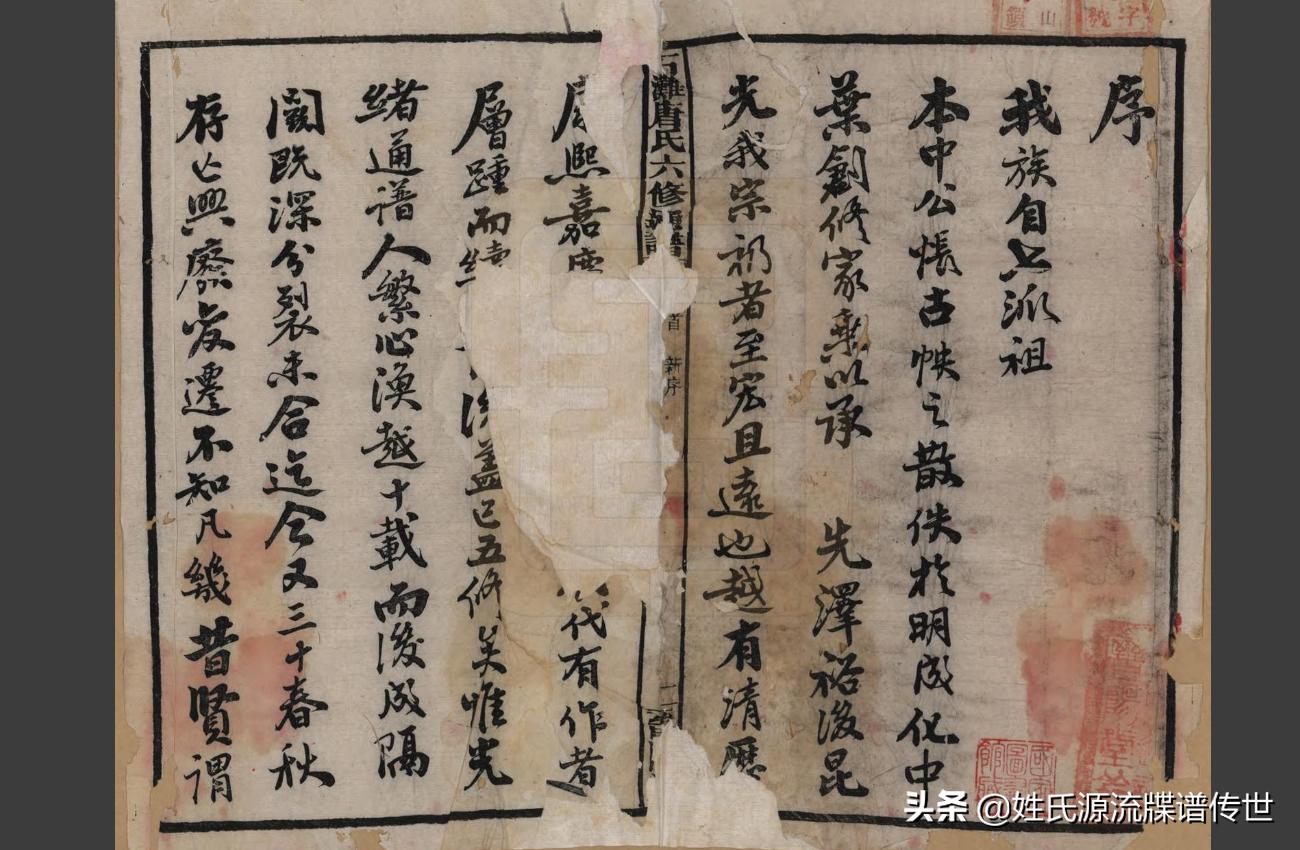 序
我族自上派祖
本中公悵古帙之散佚於明成化中
葉創修家乘以承 先澤裕後昆
光我宗祊者至宏且遠也越有清歷
熙嘉 代有作者
層踵而續 後蓋已五修矣唯光
緒通譜人繁心渙越十載而後成隔
閡既深分裂未合迄今又三十春秋
存亡興廢變遷不知凡幾昔賢謂
灘唐氏六修
首 新序
頭條 @姓氏源流牒谱传世